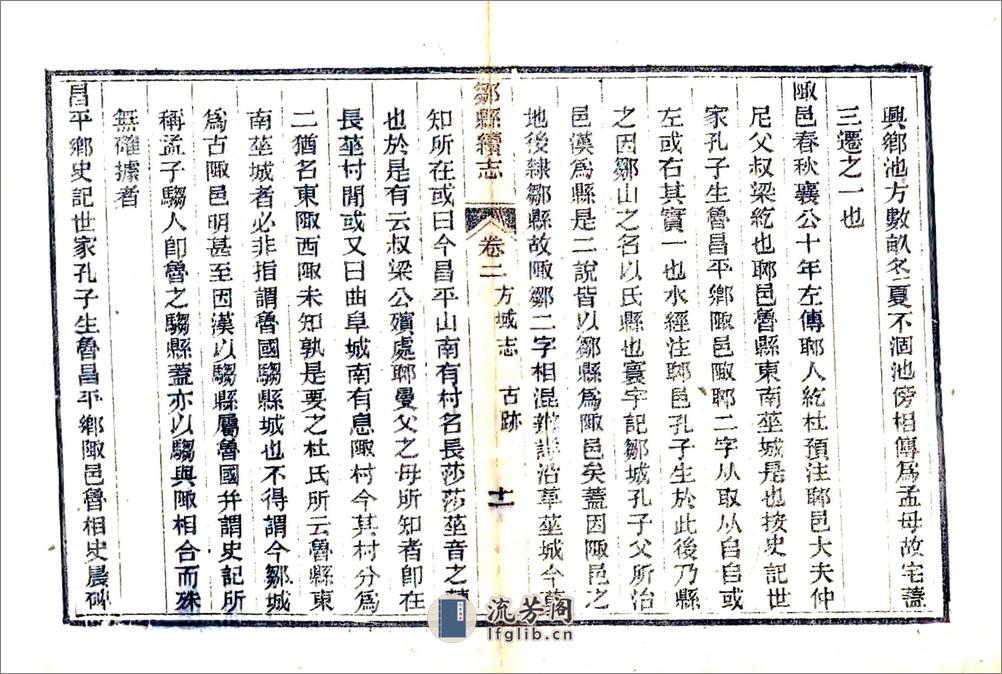 興鄉池方數畝冬夏不涸池傍相傳爲孟母故宅蓋
三遷之一也
陬邑春秋襄公十年左傳郰人紇杜預注郰邑大夫仲
尼父叔梁紇也郰邑魯縣東南莝城是也按史記世
家孔子生魯昌平鄉陬邑陬郰二字从取从自自或
左或右其實一也水經注郰邑孔子生於此後乃縣
之因鄒山之名以氏縣也寰宇記鄒城孔子父所治
邑漢爲縣是二說皆以鄒縣爲陬邑矣蓋因陬邑之
地後隸鄒縣故陬鄒二字相混雜 沿革莝城今
鄒縣續志
卷二
方域志
古跡
十一
知所在或曰今昌平山南有村名長莎莎莝音之
也於是有云叔梁公殯處郰曼父之母所知者卽在
長莝村閒或又曰曲阜城南有息陬村今其村分爲
二猶名東陬西陬未知孰是要之杜氏所云魯縣東
南莝城者必非指謂魯國騶縣城也不得謂今鄒城
爲古陬邑明甚至因漢以騶縣屬魯國幷謂史記所
稱孟子騶人卽魯之騶縣蓋亦以騶與陬相合而殊
無確據者
昌平鄉史記世家孔子生魯昌平鄉陬邑魯相史晨碑
流芳阁
lfglib.cn